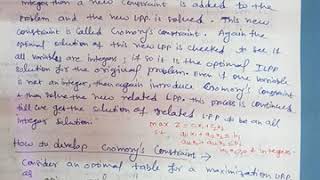 integer then a new constraint is added to the
problem and the new LPP is solved. This new
constraint is called Gromory's constraint. Again the
optimal solution of this new LPP is checked to see if
all variables are integer; if so it is the optimal ILPP
solution for the original problem. Even if one variable
is not an integer, then again introduce Gromory's constraint
& then solve the new related LPP. this process is continued
till we get the solution of related LPP to be an all
integer solution.
max Z =
s.t.
integer.
How to develop Gromory's Constraint →
Consider an optimal table for a maximization LPP
as